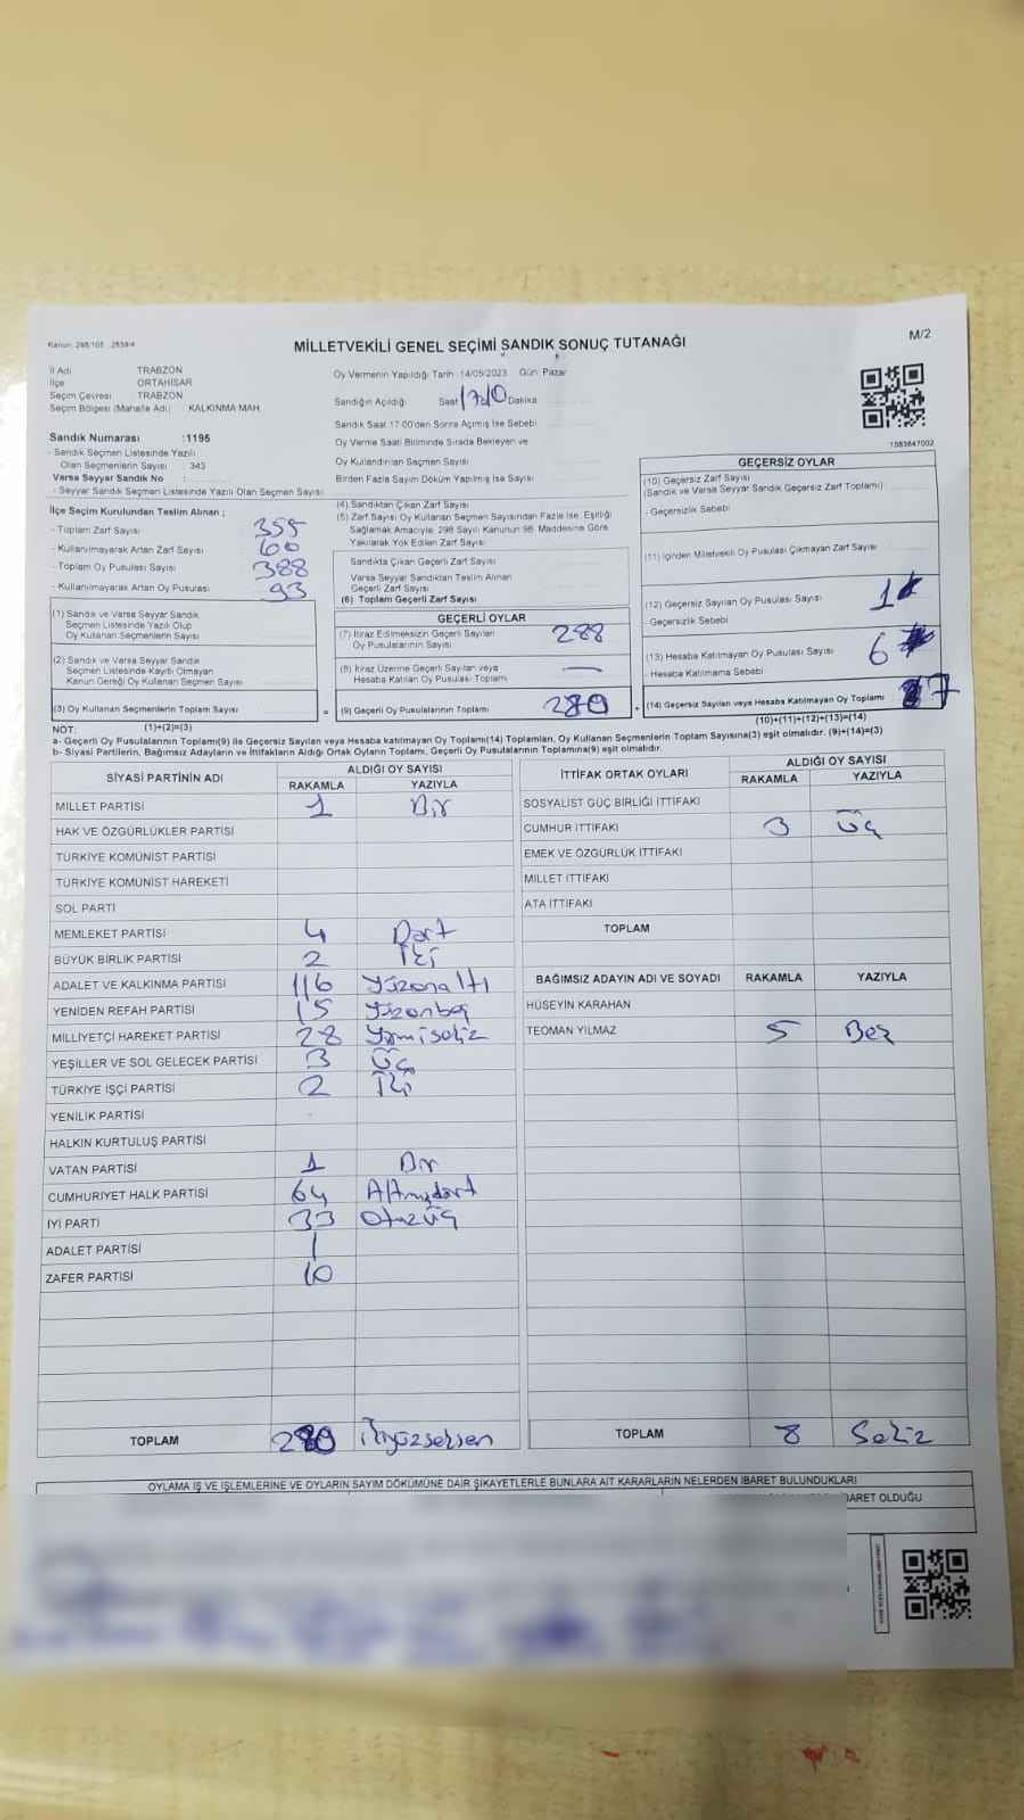 Kanun: 298/105
M/2
MİLLETVEKİLİ GENEL SEÇİMİ SANDIK SONUÇ TUTANAĞI
İl Adı TRABZON
İlçe ORTAHİSAR
Seçim Çevresi TRABZON
Seçim Bölgesi (Mahalle Adı) : KALKINMA MAH.
Sandık Numarası :1195
- Sandık Seçmen Listesinde Yazılı
Olan Seçmenlerin Sayısı : 343
Varsa Seyyar Sandık No :
- Seyyar Sandık Seçmen Listesinde Yazılı Olan Seçmen Sayısı:
İlçe Seçim Kurulundan Teslim Alınan ;
- Toplam Zarf Sayısı 355
- Kullanılmayarak Artan Zarf Sayısı 60
- Toplam Oy Pusulası Sayısı 388
- Kullanılmayarak Artan Oy Pusulası 93
(1) Sandık ve Varsa Seyyar Sandık
Seçmen Listesinde Yazılı Olup
Oy Kullanan Seçmenlerin Sayısı
(2) Sandık ve Varsa Seyyar Sandık
Seçmen Listesinde Kayıtlı Olmayan
Kanun Gereği Oy Kullanan Seçmen Sayısı
(3) Oy Kullanan Seçmenlerin Toplam Sayısı
(1)+(2)=(3)
Oy Vermenin Yapıldığı Tarih :14/05/2023 Gün: Pazar
Sandığın Açıldığı Saat Dakika
Sandık Saat 17.00'den Sonra Açılmış İse Sebebi
Oy Verme Saati Bitiminde Sırada Bekleyen ve
Oy Kullandırılan Seçmen Sayısı
Birden Fazla Sayım Döküm Yapılmış İse Sayısı
(4) Sandıktan Çıkan Zarf Sayısı
(5) Zarf Sayısı Oy Kullanan Seçmen Sayısından Fazla İse, Eşitliği
Sağlamak Amacıyla, 298 Sayılı Kanunun 98. Maddesine Göre
Yakılarak Yok Edilen Zarf Sayısı
Sandıkta Çıkan Geçerli Zarf Sayısı
Varsa Seyyar Sandıktan Teslim Alınan
Geçerli Zarf Sayısı
(6) Toplam Geçerli Zarf Sayısı
GEÇERLİ OYLAR
(7) İtiraz Edilmeksizin Geçerli Sayılan
Oy Pusulalarının Sayısı 288
(8) İtiraz Üzerine Geçerli Sayılan veya
Hesaba Katılan Oy Pusulası Toplamı —
= (9) Geçerli Oy Pusulalarının Toplamı
1583647002
GEÇERSİZ OYLAR
(10) Geçersiz Zarf Sayısı
(Sandık ve Varsa Seyyar Sandık Geçersiz Zarf Toplamı)
- Geçersizlik Sebebi
(11) İçinden Milletvekili Oy Pusulası Çıkmayan Zarf Sayısı
(12) Geçersiz Sayılan Oy Pusulası Sayısı 1
- Geçersizlik Sebebi
(13) Hesaba Katılmayan Oy Pusulası Sayısı 6
- Hesaba Katılmama Sebebi
+ (14) Geçersiz Sayılan veya Hesaba Katılmayan Oy Toplamı 7
(10)+(11)+(12)+(13)=(14)
NOT:
a- Geçerli Oy Pusulalarının Toplamı(9) ile Geçersiz Sayılan veya Hesaba katılmayan Oy Toplamı(14) Toplamları, Oy Kullanan Seçmenlerin Toplam Sayısına(3) eşit olmalıdır. (9)+(14)=(3)
b- Siyasi Partilerin, Bağımsız Adayların ve İttifakların Aldığı Ortak Oyların Toplamı, Geçerli Oy Pusulalarının Toplamına(9) eşit olmalıdır.
SİYASİ PARTİNİN ADI ALDIĞI OY SAYISI
RAKAMLA YAZIYLA
MİLLET PARTİSİ 1 Bir
HAK VE ÖZGÜRLÜKLER PARTİSİ
TÜRKİYE KOMÜNİST PARTİSİ
TÜRKİYE KOMÜNİST HAREKETİ
SOL PARTİ
MEMLEKET PARTİSİ 4 Dört
BÜYÜK BİRLİK PARTİSİ 2 İki
ADALET VE KALKINMA PARTİSİ 116 Yüzonaltı
YENİDEN REFAH PARTİSİ 15 Yüzonbeş
MİLLİYETÇİ HAREKET PARTİSİ 28 Yirmisekiz
YEŞİLLER VE SOL GELECEK PARTİSİ 3 Üç
TÜRKİYE İŞÇİ PARTİSİ 2 İki
YENİLİK PARTİSİ
HALKIN KURTULUŞ PARTİSİ
VATAN PARTİSİ 1 Bir
CUMHURİYET HALK PARTİSİ 64 Altmışdört
İYİ PARTİ 33 Otuzüç
ADALET PARTİSİ 1
ZAFER PARTİSİ 10
TOPLAM 280 İkiyüzseksen
İTTİFAK ORTAK OYLARI ALDIĞI OY SAYISI
RAKAMLA YAZIYLA
SOSYALİST GÜÇ BİRLİĞİ İTTİFAKI
CUMHUR İTTİFAKI 3 Üç
EMEK VE ÖZGÜRLÜK İTTİFAKI
MİLLET İTTİFAKI
ATA İTTİFAKI
TOPLAM
BAĞIMSIZ ADAYIN ADI VE SOYADI RAKAMLA YAZIYLA
HÜSEYİN KARAHAN
TEOMAN YILMAZ 5 Beş
TOPLAM 8 Sekiz
OYLAMA İŞ VE İŞLEMLERİNE VE OYLARIN SAYIM DÖKÜMÜNE DAİR ŞİKAYETLERLE BUNLARA AİT KARARLARIN NELERDEN İBARET BULUNDUKLARI
OLDUĞU